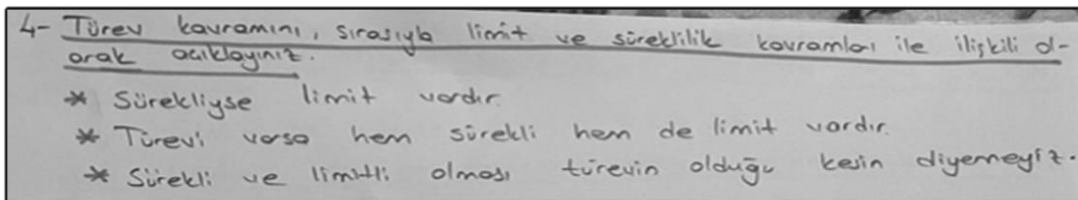 4- Türev kavramını, sırasıyla limit ve süreklilik kavramları ile ilişkili ol-
arak açıklayınız.
* Sürekliyse limit vardır.
* Türevi varsa hem sürekli hem de limit vardır.
* Sürekli ve limitli olması türevin olduğu kesin diyemeyiz.